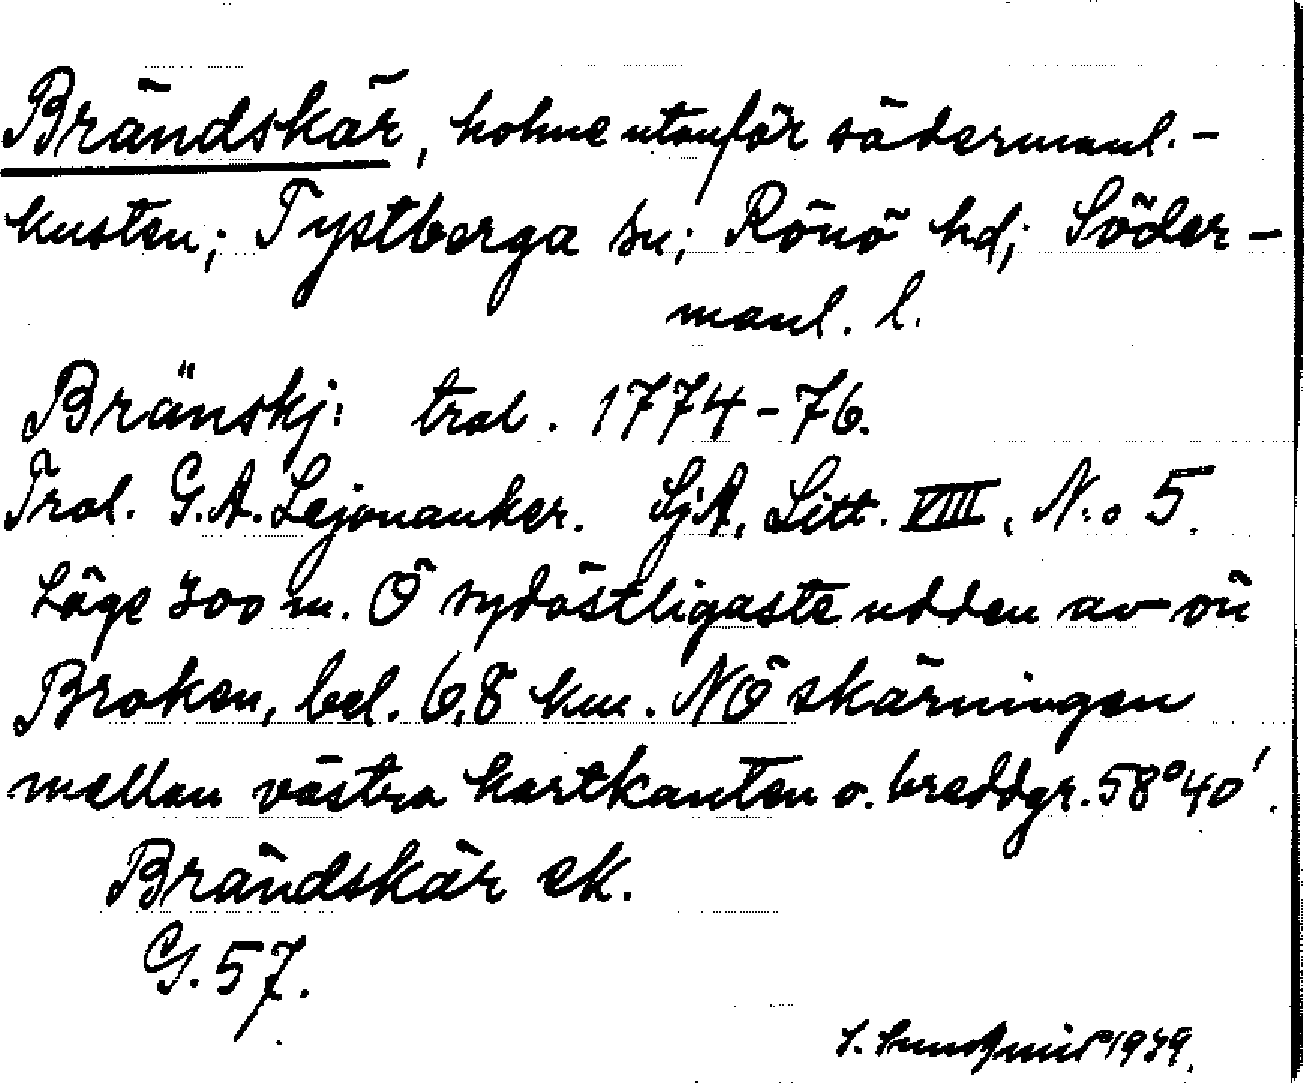 Brändskär, holme utanför södermanl.-
kusten; Tystberga sn; Rönö hd; Söder-
manl. l.
Bränskj: tral. 1774-76.
Tral. G.A. Lejonanker. SjA, Litt. VIII, No 5.
Läge 300 m. Ö sydöstligaste udden av ön
Broken, bel. 6,8 km. NÖ skärningen
mellan västra kartkanten o. breddgr. 58°40'.
Brändskär ek.
G. 57.
S. 1939.